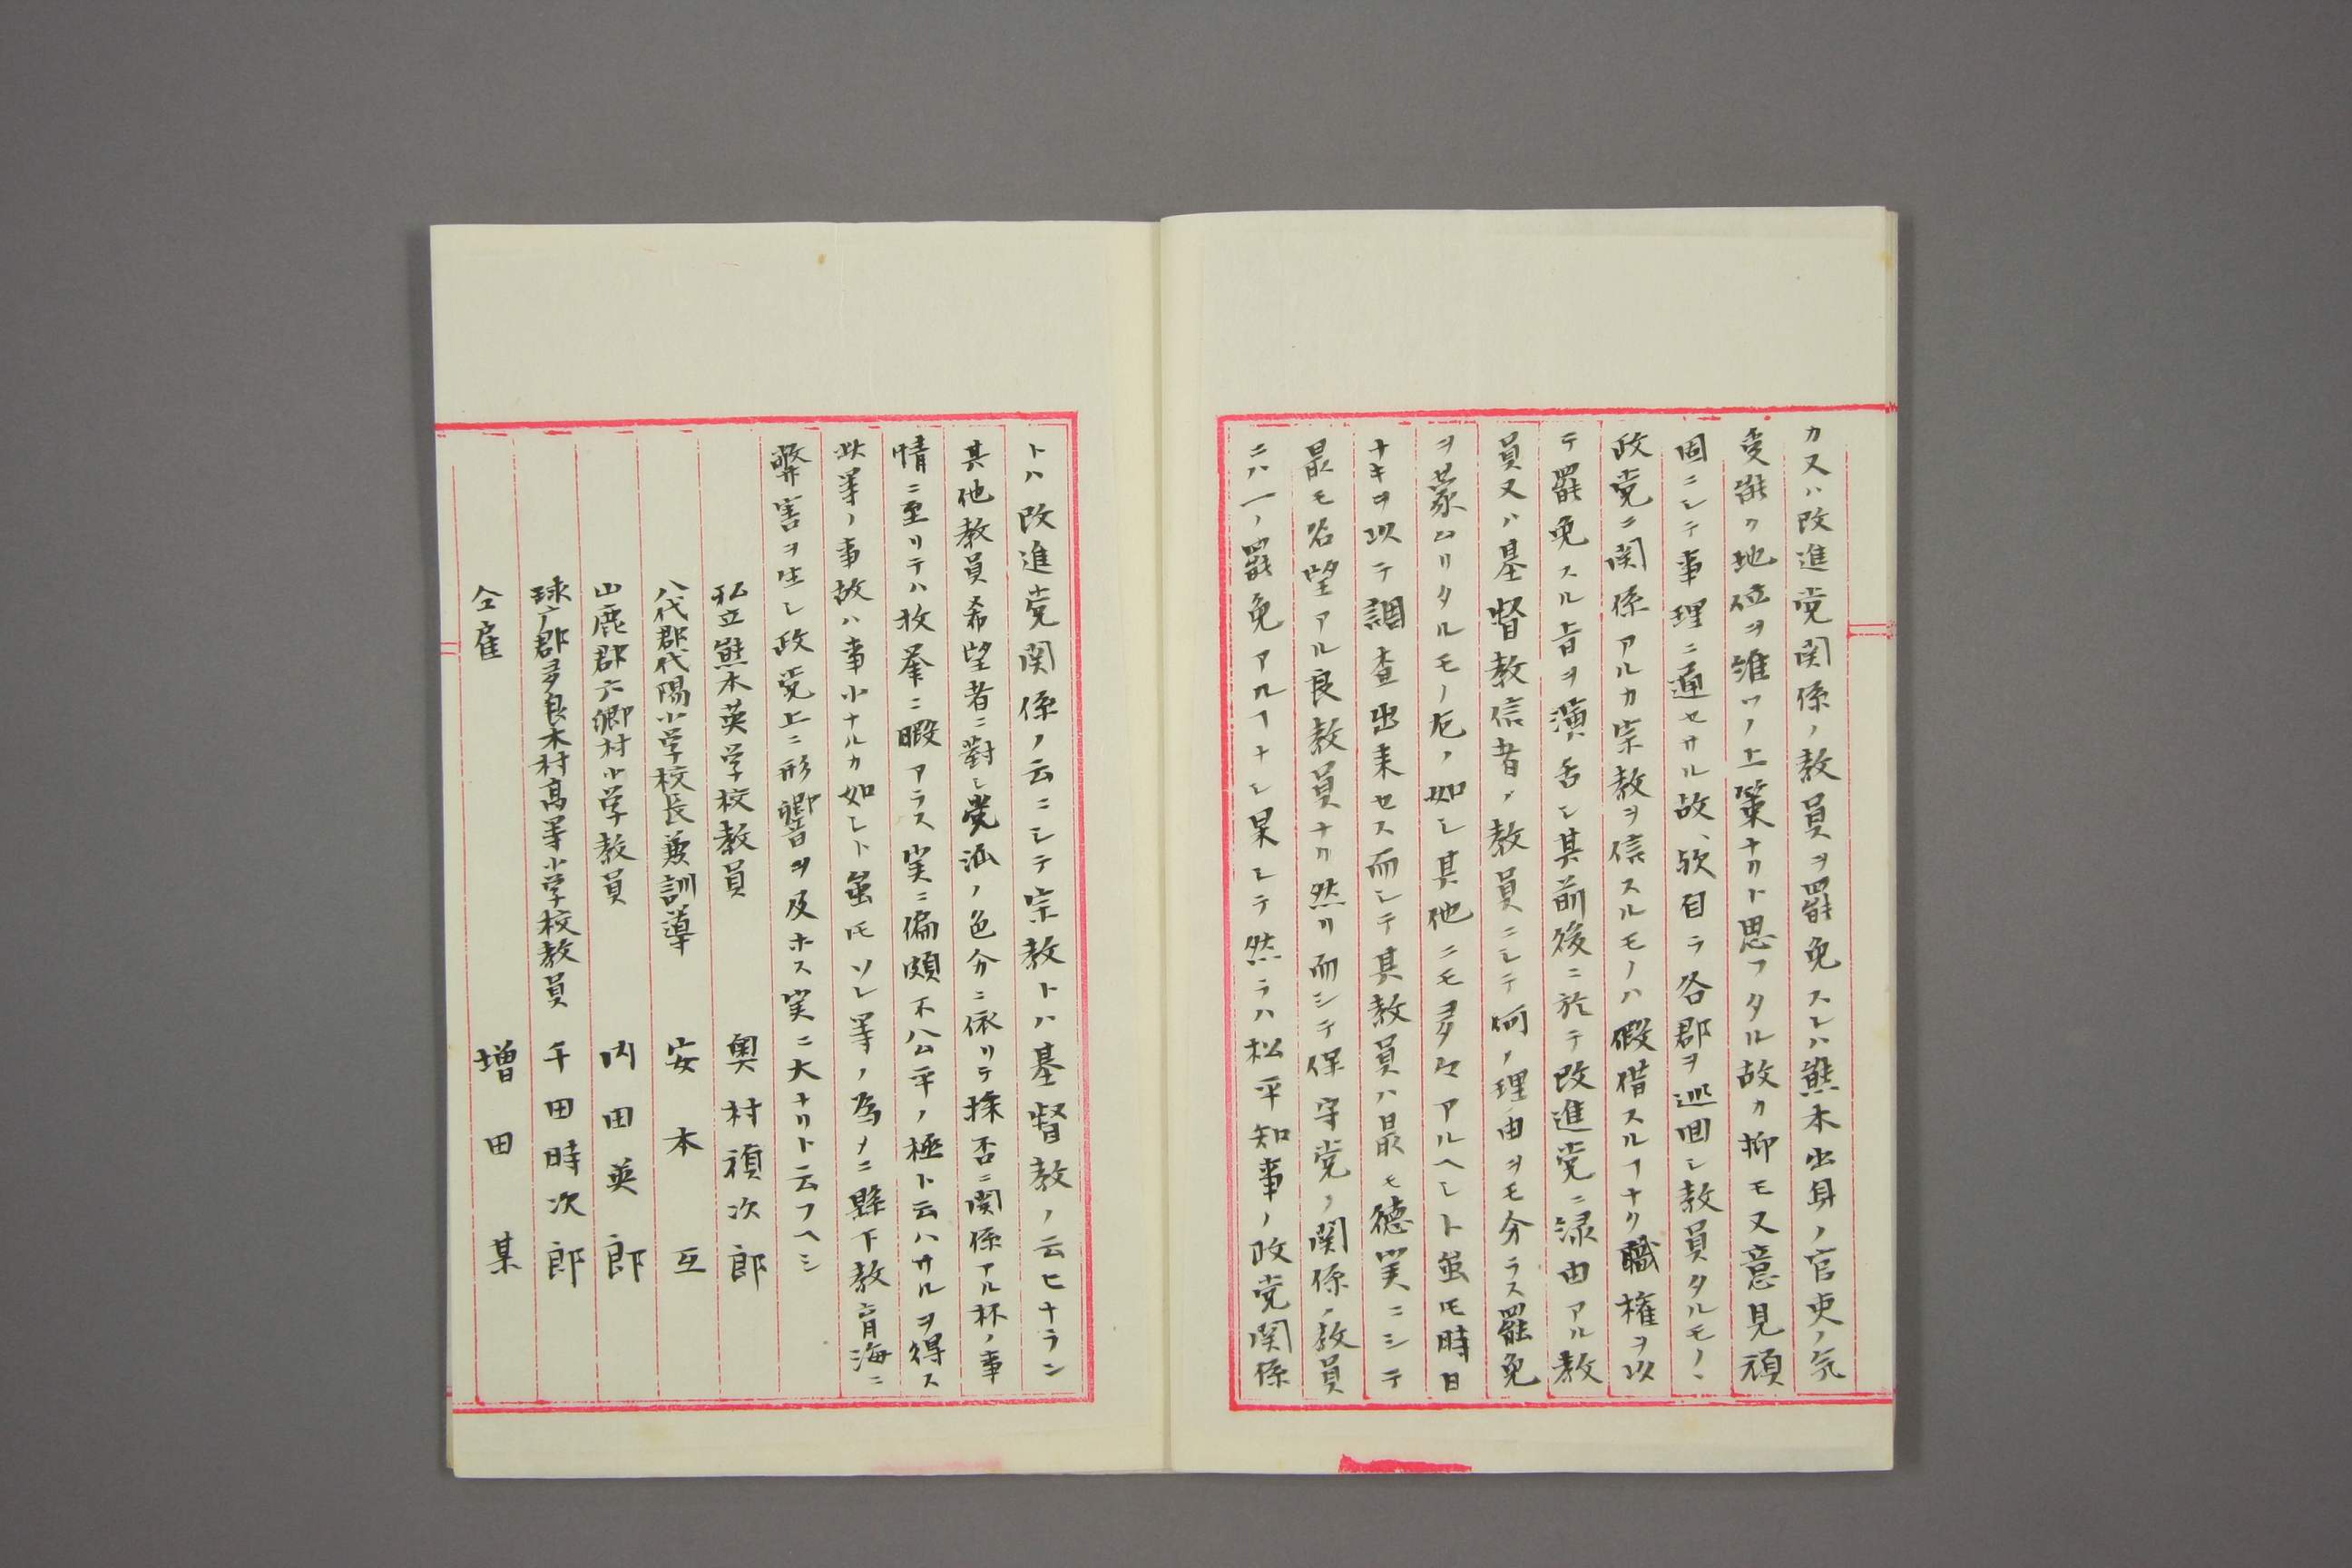 カ又ハ改進党関係ノ教員ヲ罷免スレハ熊本出身ノ官吏ノ気
受能ク地位ヲ維ツノ上策ナリト思フタル故カ抑モ又意見頑
固ニシテ事理ニ通セサル故ヽ欤自ラ各郡ヲ巡回シ教員タルモノヽ
政党ニ関係アルカ宗教ヲ信スルモノハ假借スルヿナク職権ヲ以
テ罷免スル旨ヲ演舌シ其前後ニ於テ改進党ニ縁由アル教
員又ハ基督教信者ノ教員ニシテ何ノ理由ヲモ分ラス罷免
ヲ蒙ムリタルモノ左ノ如シ其他ニモ多々アルヘシト虽モ時日
ナキヲ以テ調査出来セス而シテ其教員ハ最モ徳実ニシテ
最モ名望アル良教員ナリ然リ而シテ保守党ノ関係ノ教員
ニハ一ノ罷免アルヿナシ果シテ然ラハ松平知事ノ政党関係
トハ改進党関係ノ云ニシテ宗教トハ基督教ノ云ヒナラン
其他教員希望者ニ對シ党派ノ色分ニ依リテ採否ニ関係アル杯ノ事
情ニ至リテハ枚挙ニ暇アラス実ニ偏頗不公平ノ極ト云ハサルヲ得ス
此等ノ事故ハ事小ナルカ如シト虽モソレ等ノ為メニ縣下教育海ニ
弊害ヲ生シ政党上ニ形響ヲ及ホス実ニ大ナリト云フヘシ
私立熊本英学校教員 奥村禎次郎
八代郡代陽小学校長兼訓導 安本互
山鹿郡六郷村小学教員 内田英郎
球广郡多良木村高等小学校教員 千田時次郎
仝雇 増田某